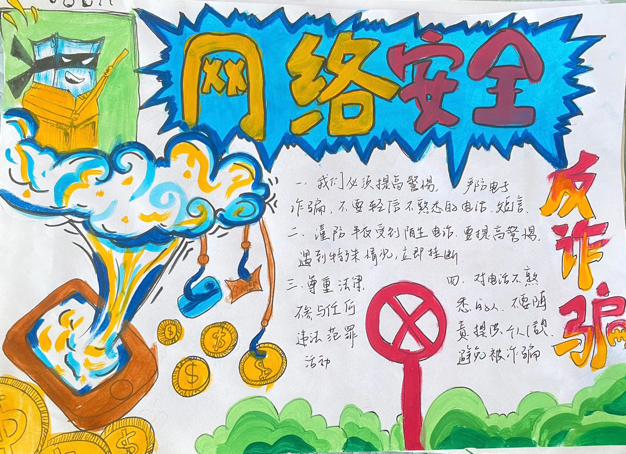 网络安全
反诈骗
一、我们必须提高警惕，严防电士
诈骗，不要轻信不熟悉的电话、短信，
二、谨防 受到陌生电话，要提高警惕，
遇到特殊情况，立即挂断
三、尊重法律
与任何
违法范罪
活动
四、对电话不熟
悉的人，不要随
提供个人
避免被诈骗